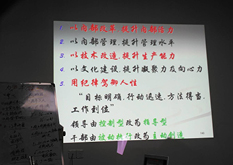 1. 以内部改革,提升内部活力
2. 以内部管理,提升管理水平
3. 以技术改造,提升生产能力
4. 以文化建设,提升凝聚力及向心力
5. 用纪律驾驭人性
"目标明确,行动迅速,方法得当,
工作到位"
领导由控制型改为指导型
干部由被动执行改为主动创造